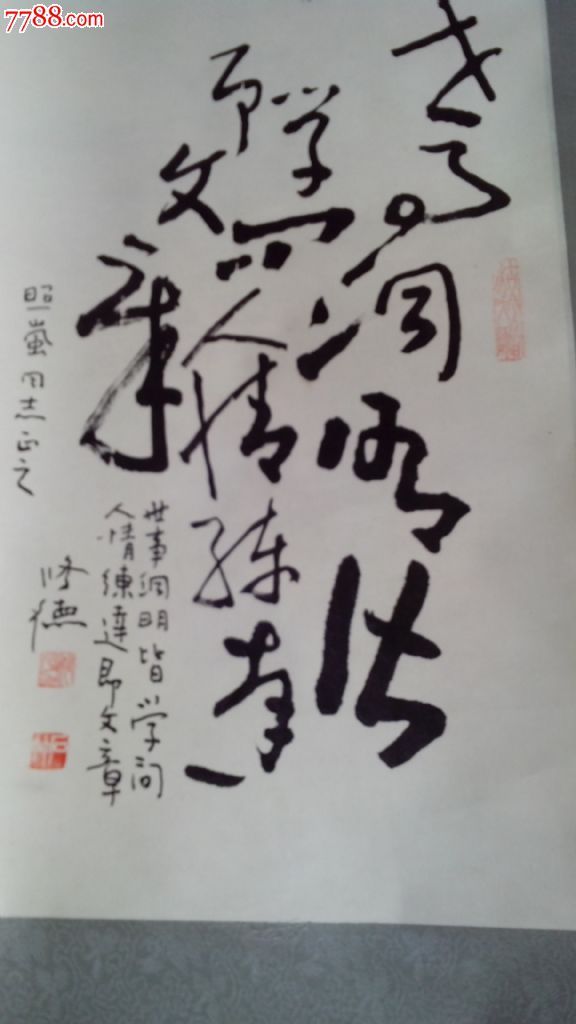 7788.com
世事洞明皆
学问人情练达
即文章
世事洞明皆学问
人情練達即文章
照嵐同志正之
修德